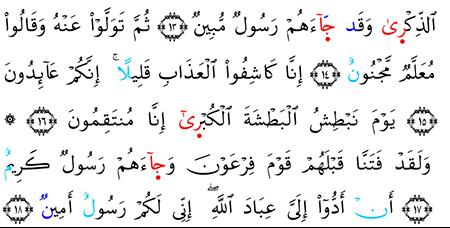 ٱلذِّكۡرِىٰ وَقَد جَّآءَهُمۡ رَسُولٌ مُّبِينٌ ﴿١٣﴾ ثُمَّ تَوَلَّوۡاْ عَنۡهُ وَقَالُواْ
مُعَلَّمٌ مَّجۡنُونٌ ﴿١٤﴾ إِنَّا كَاشِفُواْ ٱلۡعَذَابِ قَلِيلًاۚ إِنَّكُمۡ عَآئِدُونَ
﴿١٥﴾ يَوۡمَ نَبۡطِشُ ٱلۡبَطۡشَةَ ٱلۡكُبۡرِىٰٓ إِنَّا مُنتَقِمُونَ ﴿١٦﴾ ۞
وَلَقَدۡ فَتَنَّا قَبۡلَهُمۡ قَوۡمَ فِرۡعَوۡنَ وَجَآءَهُمۡ رَسُولٌ كَرِيمٌ
﴿١٧﴾ أَنۡ أَدُّوٓاْ إِلَىَّ عِبَادَ ٱللَّهِۖ إِنِّى لَكُمۡ رَسُولٌ أَمِينٌ ﴿١٨﴾